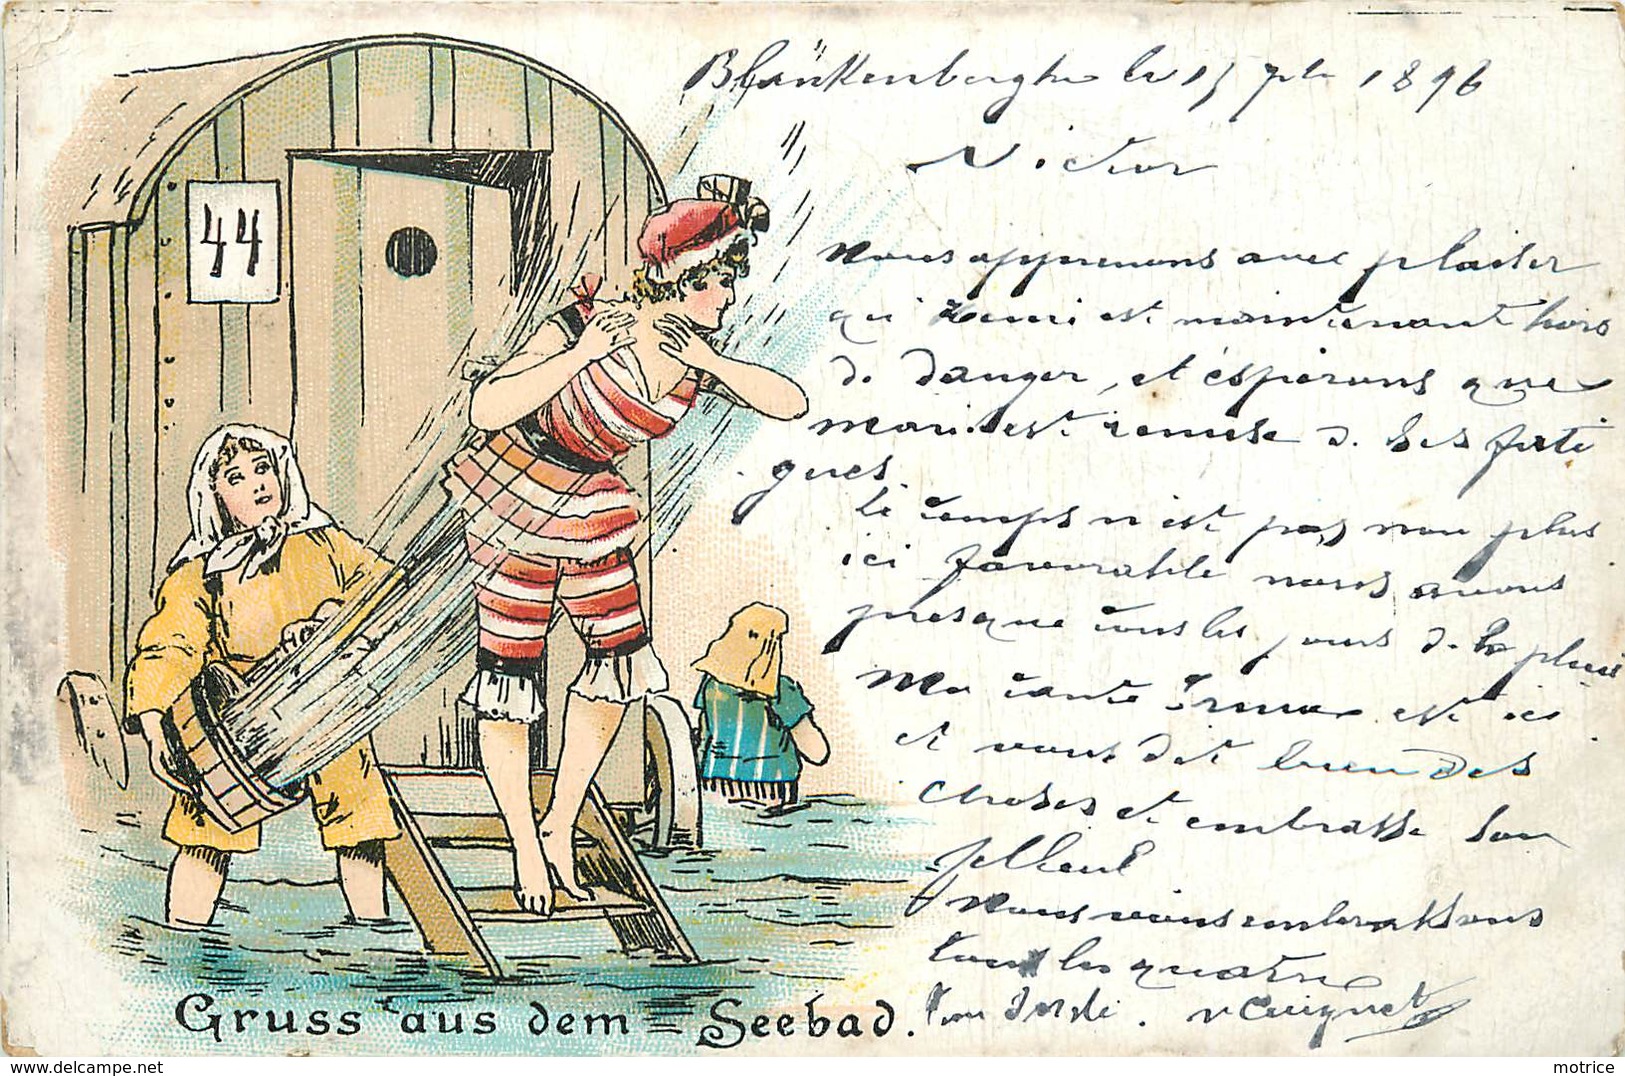 Blankenberghe le 15 7bre 1896
Victor
44
Nous apprenons avec plaisir
qui Henri est maintenant hors
de danger, et espérons que
Marie est remise de ses fati
gues.
Le temps n'est pas non plus
ici favorable nous avons
presque tous les jours de la pluie
Ma tante Irma est ici
et vous dit bien des
choses et embrasse son
filleul
Nous vous embrassons
tous les quatre
Cuignet
Gruss aus dem Seebad.
motrice